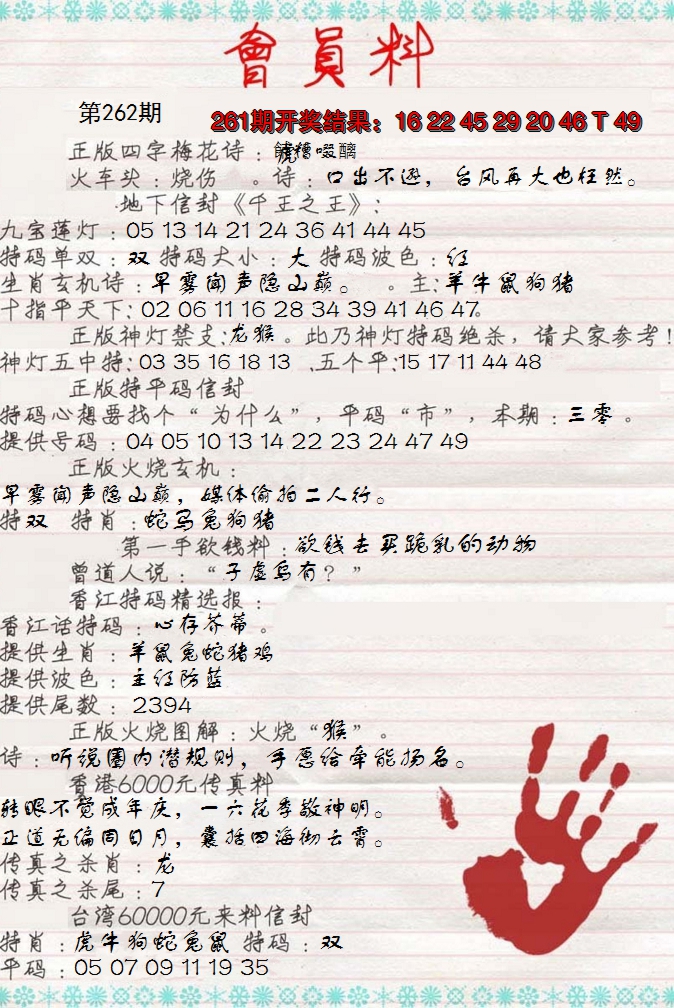 會員料
第262期
261期开奖结果：16 22 45 29 20 46 T 49
正版四字梅花诗：餔糟啜醨
火车头：烧伤 。诗：口出不逊，台风再大也枉然。
地下信封《千王之王》：
九宝莲灯：05 13 14 21 24 36 41 44 45
特码单双：双 特码大小：大 特码波色：红
生肖玄机诗：早雾闻声隐山巅。 。主：羊牛鼠狗猪
十指平天下：02 06 11 16 28 34 39 41 46 47.
正版神灯禁支：龙猴。此乃神灯特码绝杀，请大家参考！
神灯五中特：03 35 16 18 13 .五个平：15 17 11 44 48
正版特平码信封
特码心想要找个“为什么”，平码“市”，本期：三零。
提供号码：04 05 10 13 14 22 23 24 47 49
正版火烧玄机：
早雾闻声隐山巅，媒体偷拍二人行。
特双 特肖：蛇马兔狗猪
第一手欲钱料：欲钱去买跪乳的动物
曾道人说：“子虚乌有？”
香江特码精选报：
香江话特码：心存芥蒂。
提供生肖：羊鼠兔蛇猪鸡
提供波色：主红防蓝
提供尾数：2394
正版火烧图解：火烧“猴”。
诗：听说圈内潜规则，手愿给牵能扬名。
香港6000元传真料
转眼不觉成年庆，一六花季敬神明。
正道无偏同日月，囊括四海彻云霄。
传真之杀肖：龙
传真之杀尾：7
台湾60000元来料信封
特肖：虎牛狗蛇兔鼠 特码：双
平码：05 07 09 11 19 35